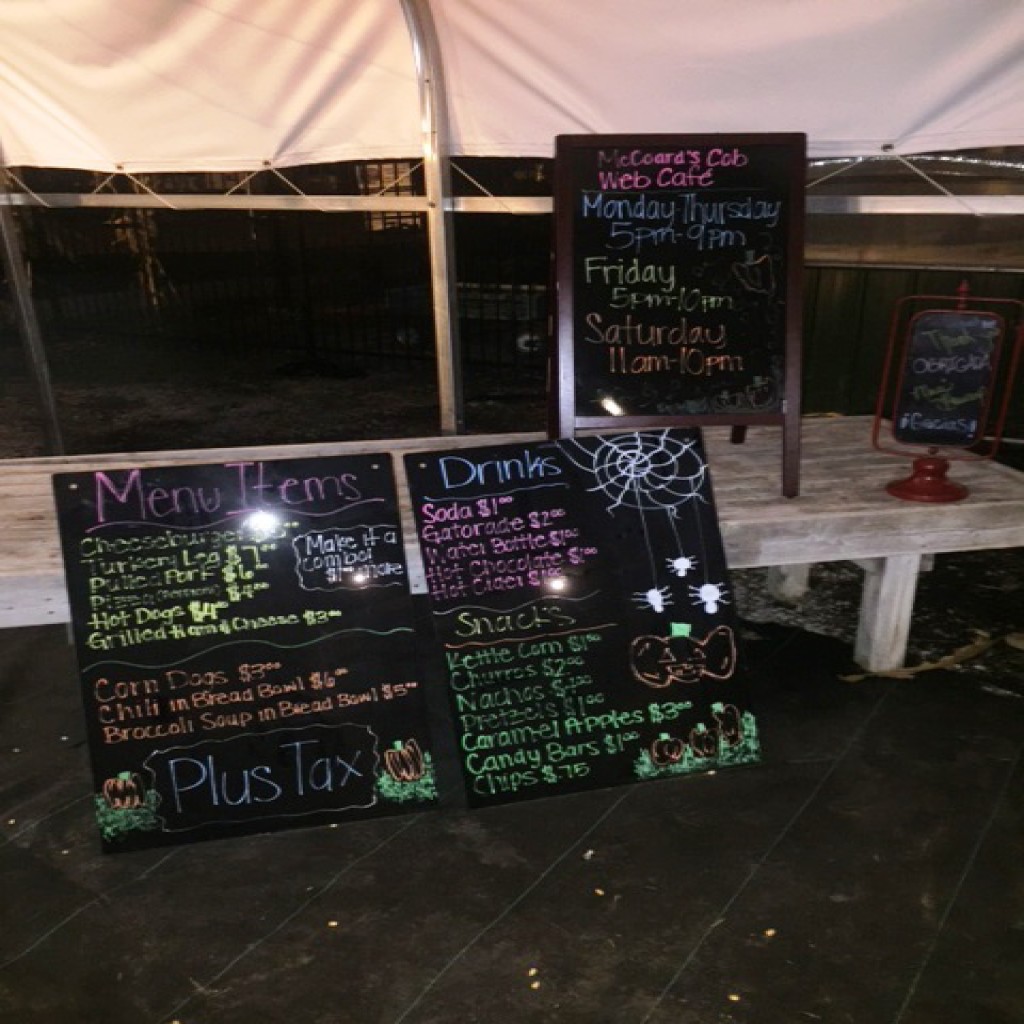 McCoard's Cob
Web Café
Monday-Thursday
5pm-9pm
Friday
5pm-10pm
Saturday
11am-10pm
OBRIGADA
Gracias
Menu Items
Cheeseburger
Turkey Leg $7
Pulled Pork $6
Pizza $4.00
Hot Dogs $4
Grilled Ham & Cheese $3.00
Make it a
combo!
more
Corn Dogs $3.00
Chili in Bread Bowl $6.00
Broccoli Soup in Bread Bowl $5.00
Plus Tax
Drinks
Soda $1.00
Gatorade $2.00
Water Bottle $1.00
Hot Chocolate $1.00
Hot Cider
Snacks
Kettle Corn $1.00
Churros $2.00
Nachos
Pretzels $1.00
Caramel Apples $3.00
Candy Bars $1.00
Chips $.75